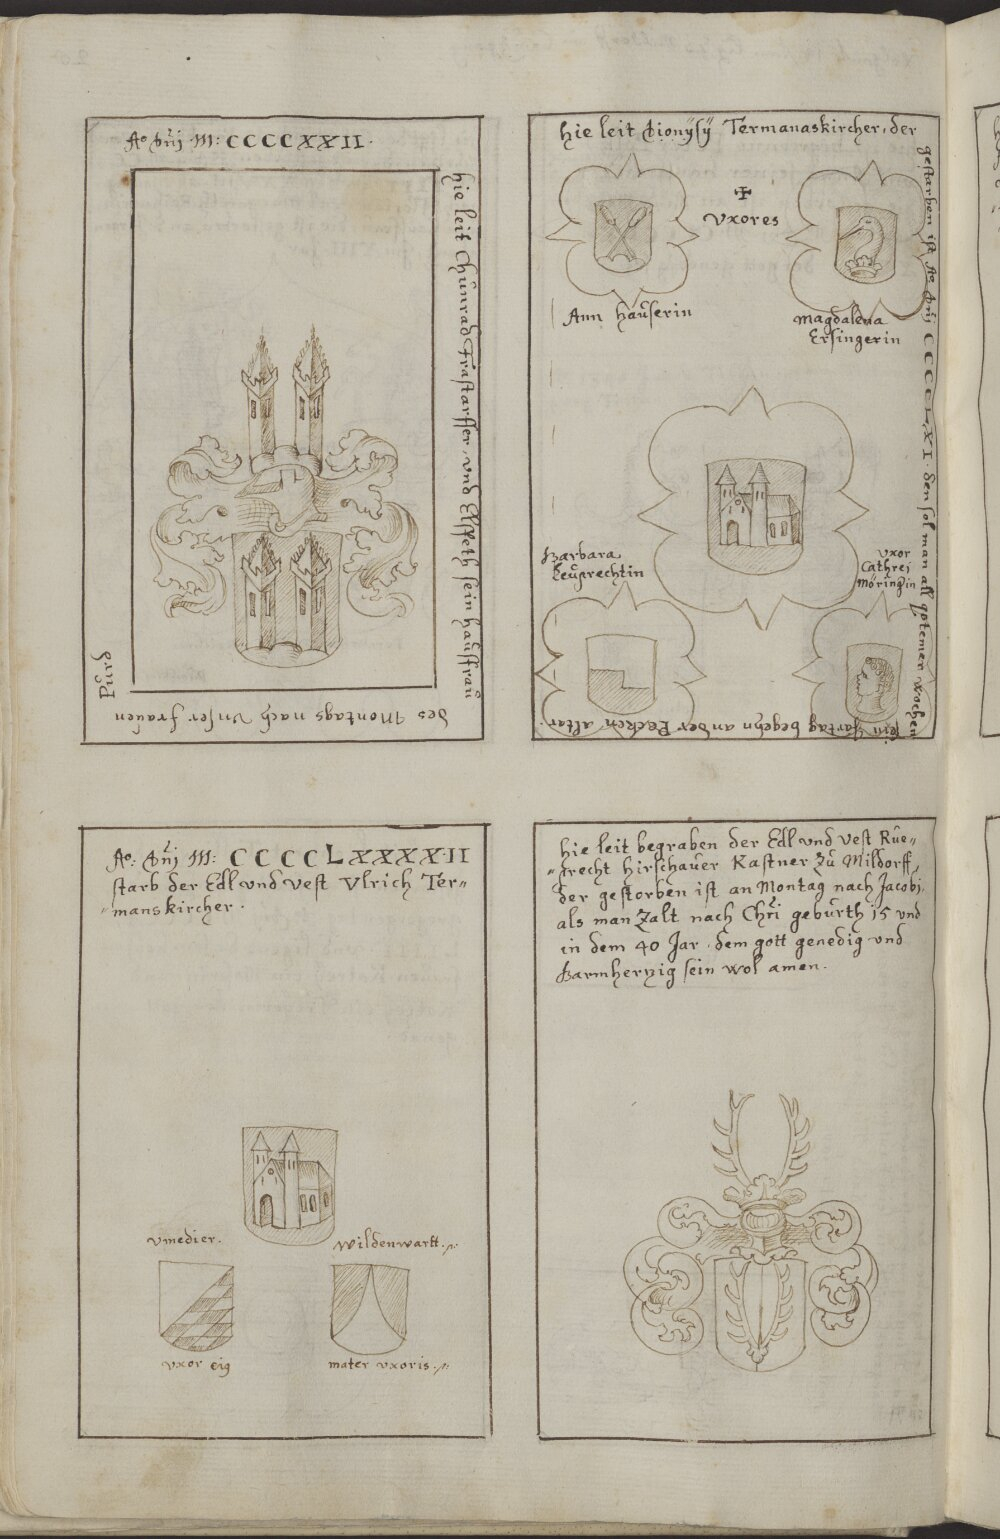 Ao Dnj M: CCCCXXII.
hie leit Chunrad Frastarffer, und Elspeth sein hausfrau
des Montags nach Unser frauen
Purd
hie leit Dionÿsÿ Termanaskircher, der
gestarben ist Ao Dnj CCCCLXI. den sol man all qotemer wochen
sein Jartag begehn an der Becken altar.
Vxores
Ann hauserin
Magdalena
Ersingerin
Barbara
Leuprechtin
vxor
Cathrej
Möringin
Ao: Dnj M: CCCCLXXXXII
starb der Edl und Vest Vlrich Ter=
=manskircher.
vmedier.
Wildenwartt.
vxor eig
mater vxoris.
hie leit begraben der Edl und Vest Rue=
=precht Hirschauer Kastner Zu Mildorff,
der gestorben ist an Montag nach Jacobj,
als man Zalt nach Chri geburth 15 und
in dem 40 Jar. dem gott genedig und
Barmherzig sein wol amen.